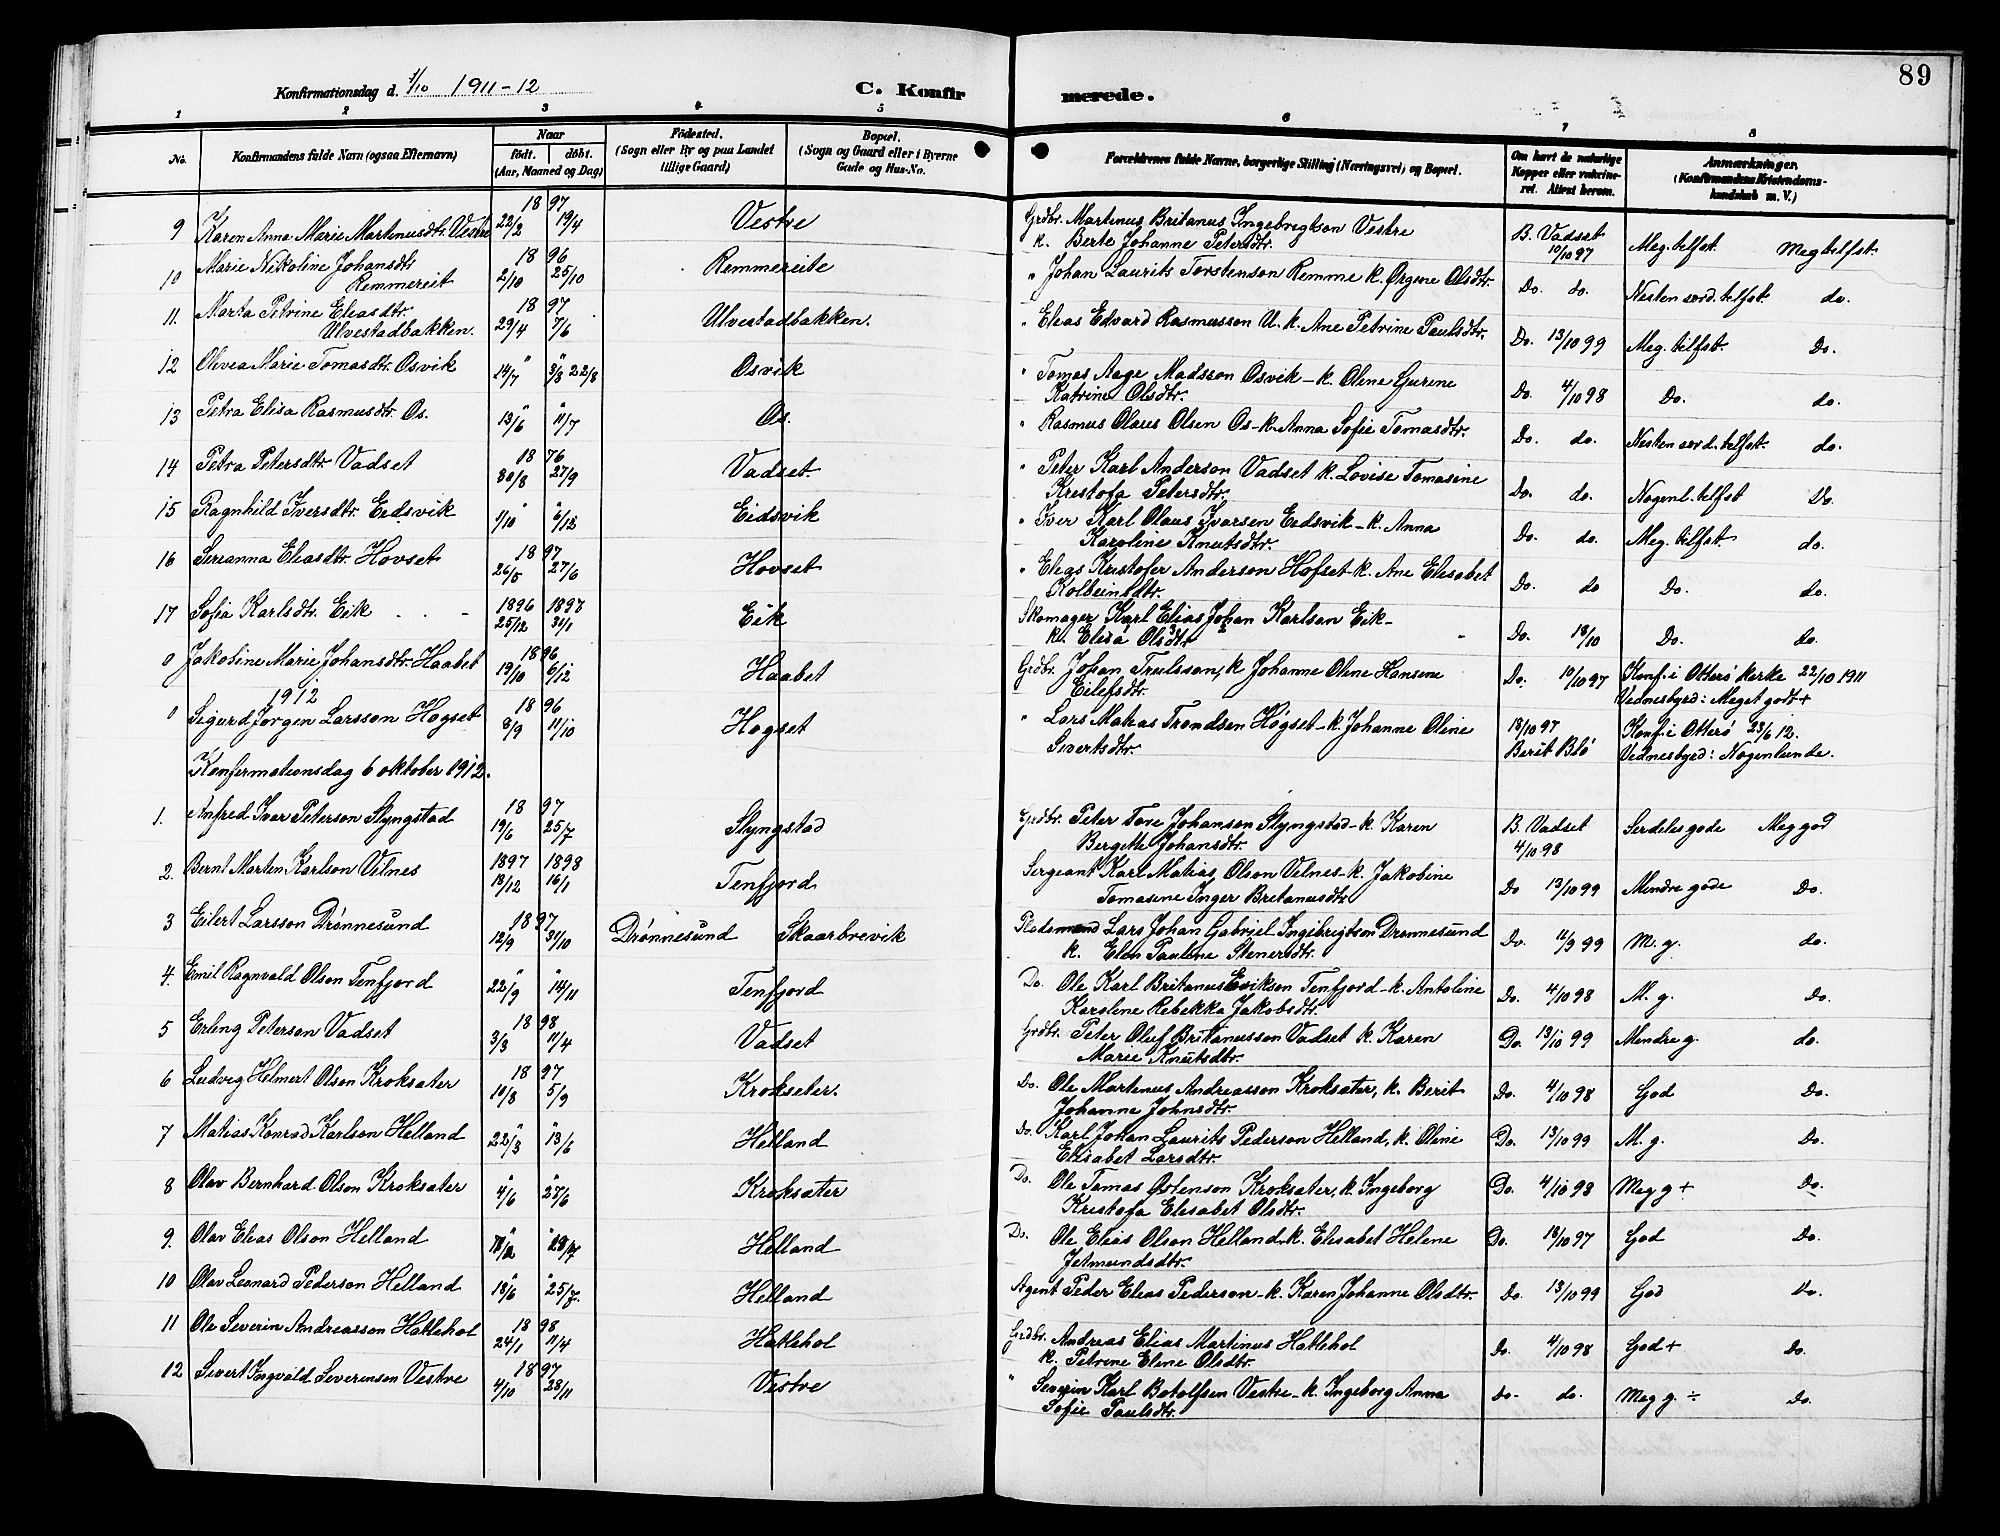 89
Konfirmationsdag d. 1/10 1911-12 C. Konfirmerede.
1 2 3 4 5 6 7 8
No. Konfirmandens fulde Navn (ogsaa Efternavn) Naar født. døbt. (Aar, Maaned og Dag) Födested. (Sogn eller By og paa Landet tillige Gaard) Bopæl. (Sogn og Gaard eller i Byerne Gade og Hus-No. Forældrenes fulde Navne, borgerlige Stilling (Næringsvei) og Bopæl. Om havt de naturlige Kopper eller vakcineret. Attest herom. Anmærkninger. (Konfirmandens Kristendomskundskab m. V.)
9 Karen Anna Marie Martinusdtr. Vestre 1897 22/2 19/4 Vestre Grdbr. Martinus Britanus Ingebrigtson Vestre B. Vadset Meg. tilfst. Meg tilfst.
k. Berte Johanne Petersdtr. 10/10 97
10 Marie Nikoline Johansdtr. Remmereit 1896 2/10 25/10 Remmereite " Johan Laurits Torstenson Remme k. Ørgine Olsdtr. Do. do. Nesten serd. tilfst. do.
11. Marta Petrine Eliasdtr. Ulvestadbakken. 1897 29/4 7/6 Ulvestadbakken. " Elias Edvard Rasmusson U. k. Ane Petrine Paulsdtr. Do. 13/10 99 Meg. tilfst. Do.
12 Olivea Marie Tomasdtr. Osvik " 14/7 " 3/8 22/8 Osvik " Tomas Aage Madsson Osvik - k. Oline Gurine Do. 4/10 98 Do. do.
Katrine Olsdtr.
13 Petra Elisa Rasmusdtr. Os. " 13/6 " 11/7 Os. " Rasmus Olaus Olsen Os - k. Anna Sofie Tomasdtr. Do. do. Nesten serd. tilfst. do.
14 Petra Petersdtr. Vadset 1876 30/8 27/9 Vadset. " Peter Karl Anderson Vadset k. Lovise Tomasine Do. do. Nogenl. tilfst Do.
Kristofa Petersdtr.
15 Ragnhild Iversdtr. Eidsvik " 1/10 " 6/12 Eidsvik " Iver Karl Olaus Ivarsen Eidsvik - k. Anna Do. do. Meg. tilfst. do.
Karoline Knutsdtr.
16 Serianna Eliasdtr. Hovset 1897 26/5 27/6 Hovset " Elias Kristofer Anderson Hofset - k. Ane Elisabet Do. do Do. do.
Kolbeinsdtr.
17 Sofia Karlsdtr. Eik 1896 25/12 1897 31/1 Eik Skomager Karl Elias Johan Karlsen Eik - Do. 18/10 Do. do.
k. Elisa Olsdtr
0 Jakobine Marie Johansdtr. Haabet 1896 19/10 6/12 Haabet Grdbr. Johan Trulsson, k. Johanne Oline Hansine Do. 10/10 97 Konf. i Otterø kirke 22/10 1911
Eilefsdtr. Vidnesbyrd: Meget godt +
1912
0 Sigurd Jørgen Larsson Hogset 1896 8/9 11/10 Hogset " Lars Matias Trondsen Høgset - k. Johanne Oline 18/10 97 Konf. i Otterø 23/6 12.
Sivertsdtr. Berit Blø Vidnesbyrd: Nogenlunde.
Konfirmationsdag 6 oktober 1912.
1. Anfred Ivar Peterson Slyngstad 1897 19/6 25/7 Slyngstad Grdbr. Peter Tore Johansen Slyngstad - k. Karen B. Vadset Serdeles gode Meg god
Bergitte Johansdtr. 4/10 98
2. Bernt Marten Karlson Vilnes 1897 18/12 1898 16/1 Tenfjord Sergeant Karl Matias Olson Vilnes - k. Jakobine Do 13/10 99 Mindre gode Do.
Tomasine Inger Britanusdtr.
3 Eilert Larsson Drønnesund 1897 12/9 31/10 Drønnesund Skaarbrevik Pladsmand Lars Johan Gabriel Ingebrigtson Drønnesund Do. 11/9 99 M. g. do.
k. Elen Pauline Stenersdtr.
4. Emil Ragnvald Olson Tenfjord " 22/9 " 14/11 Tenfjord Do. Ole Karl Britanus Erikson Tenfjord - k. Antoline Do. 4/10 98 M. g. Do.
Karoline Rebekka Jakobsdtr.
5 Erling Peterson Vadset 1898 3/3 11/4 Vadset Grdbr. Peter Oluf Britanusson Vadset k. Karen Do. 13/10 99 Mindre g. do.
Marie Knutsdtr.
6 Ludvig Helmert Olson Kroksater 1897 10/8 5/9 Kroksater. Do. Ole Martinus Andreasson Kroksater, k. Berit Do. 4/10 98 God Do.
Johanna Johnsdtr.
7 Matias Konrad Karlson Helland " 22/3 " 13/6 Helland Do. Karl Johan Laurits Pederson Helland, k. Oline Do. 13/10 99 M. g. Do.
Elisabet Larsdtr.
8 Olav Bernhard Olson Kroksater " 4/6 " 27/6 Kroksater Do. Ole Tomas Østenson Kroksater, k. Ingeborg Do. 4/10 98 Meg g + Do.
Kristofa Elisabet Olsdtr.
9. Olav Elias Olson Helland Helland Do. Ole Elias Olson Helland k. Elisabet Helene Do. 18/10 97 God Do.
Jetmundsdtr.
10 Olav Leonard Pederson Helland " 18/6 " 25/7. Helland Agent Peder Elias Pederson - k. Karen Johanne Olsdtr. Do. 13/10 99 God Do.
11 Ole Severin Andreasson Hatlehol 1898 24/1 11/4 Hatlehol Grdbr. Andreas Elias Martinus Hatlehol Do. 4/10 98 God + Do.
k. Petrine Eline Olsdtr.
12 Sivert Ingvald Severinsen Vestre 1897 4/10 28/11 Vestre " Severin Karl Botolfsen Vestre - k. Ingeborg Anna Do - do. Meg g. ÷ Do.
Sofie Paulsdtr.